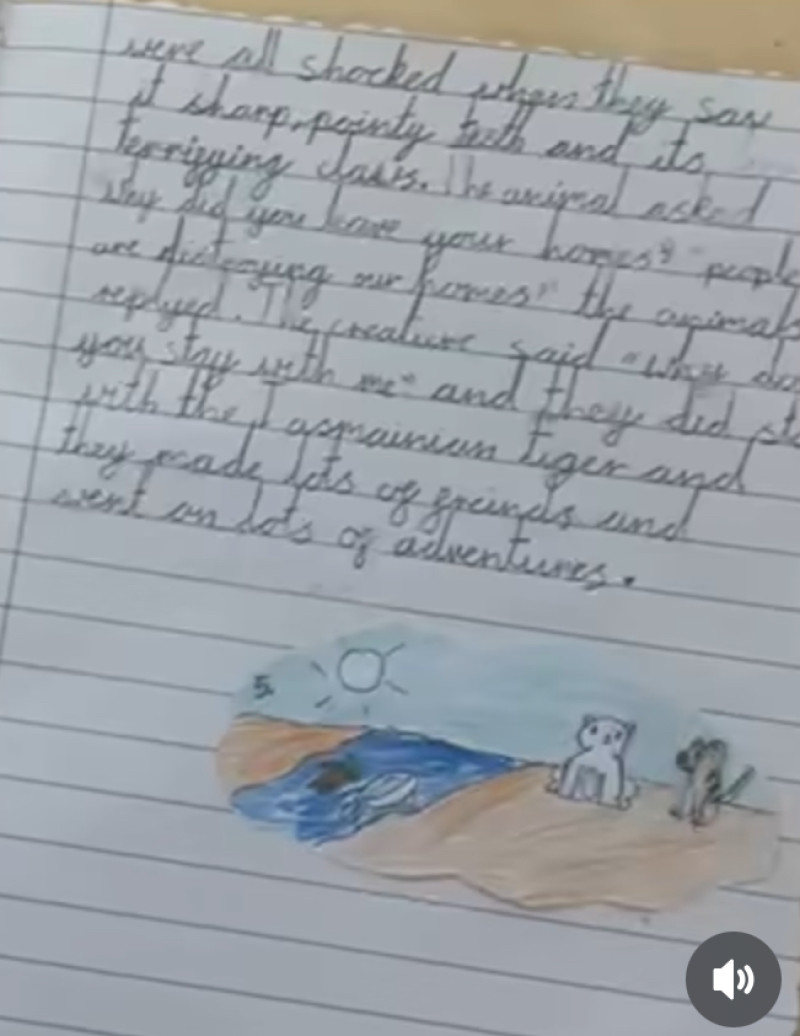 were all shocked when they saw
it sharp, pointy teeth and its
terrifying claws. The animal asked
Why did you leave your homes" "people
are distroying our homes" the animals
replyed. The creature said "Why don
you stay with me" and they did sta
with the Tasmainian tiger and
they made lots of freinds and
went on lots of adventures.
5.